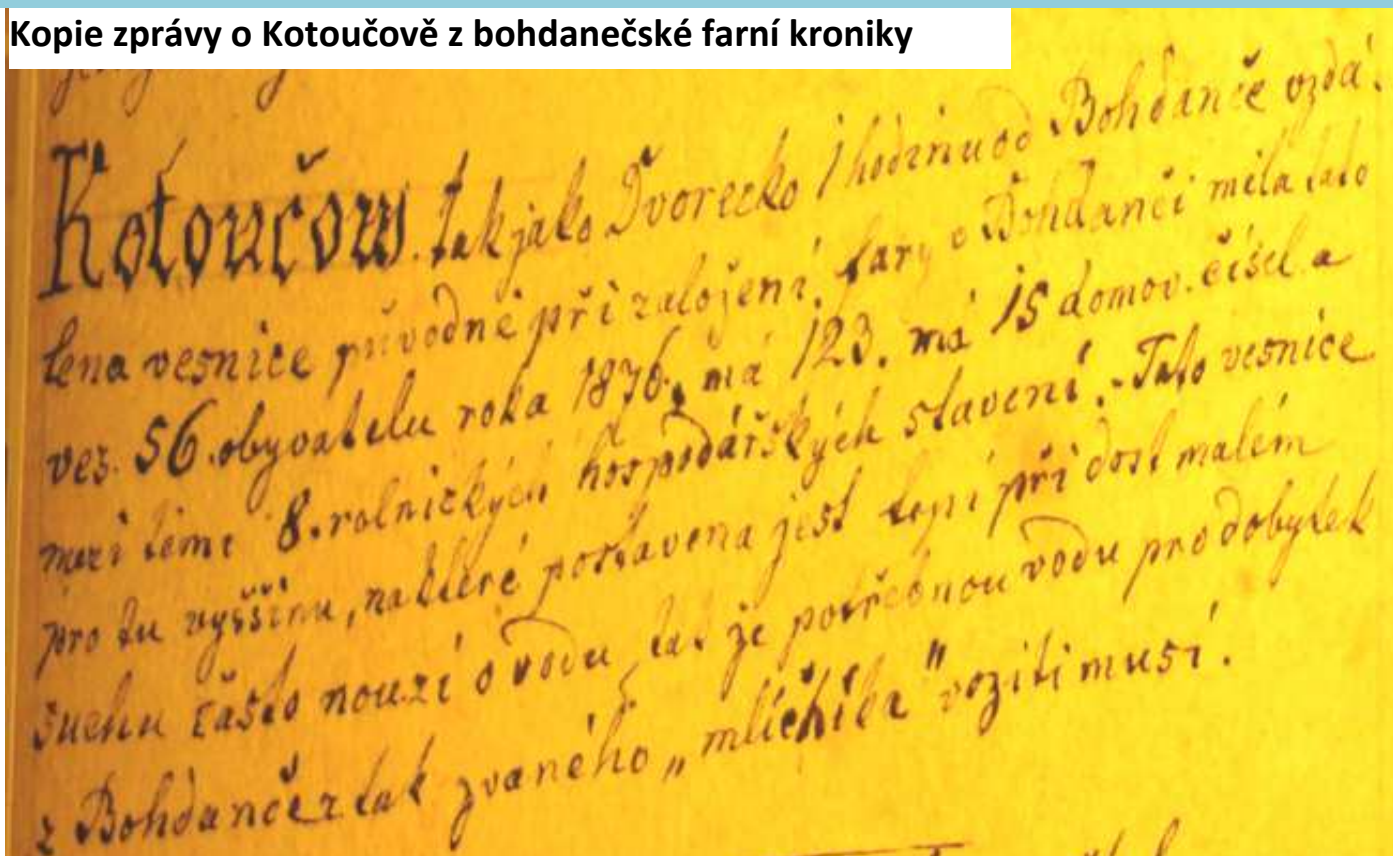 Kopie zprávy o Kotoučově z bohdanečské farní kroniky
Kotoučow. tak jako Dvorecko 1 hodinu od Bohdanče vzdá-
lena vesnice původně při založení fary v Bohdanči měla tato
ves. 56. obyvatelu roka 1876, má 123. má 15 domov. čísel a
mezi těmi 8. rolnických hospodářských stavení. - Tato vesnice
pro tu vyššinu, na které postavena jest trpí při dost malém
suchu často nouzi o vodu, tak že potřebnou vodu pro dobytek
z Bohdanče z tak zvaného „ " voziti musí.